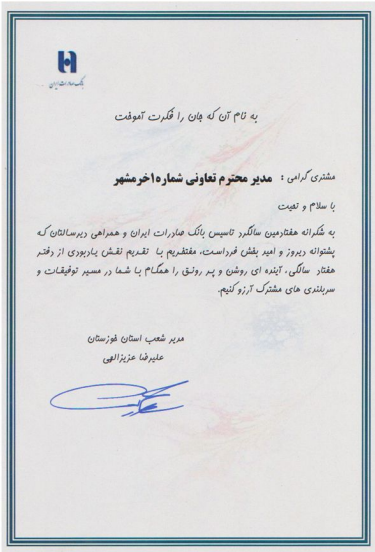 بانک صادرات ایران
به نام آن که جان را فکرت آموخت
مشتری گرامی : مدیر محترم تعاونی شماره۱خرمشهر
با سلام و تحیت
به شکرانه هفتادمین سالگرد تاسیس بانک صادرات ایران و همراهی دیرسالتان که
پشتوانه دیروز و امید بخش فرداست، مفتخریم با تقدیم نقش یادبودی از دفتر
هفتاد سالگی، آینده ای روشن و پر رونق را همگام با شما در مسیر توفیقات و
سربلندی های مشترک آرزو کنیم.
مدیر شعب استان خوزستان
علیرضا عزیزالهی